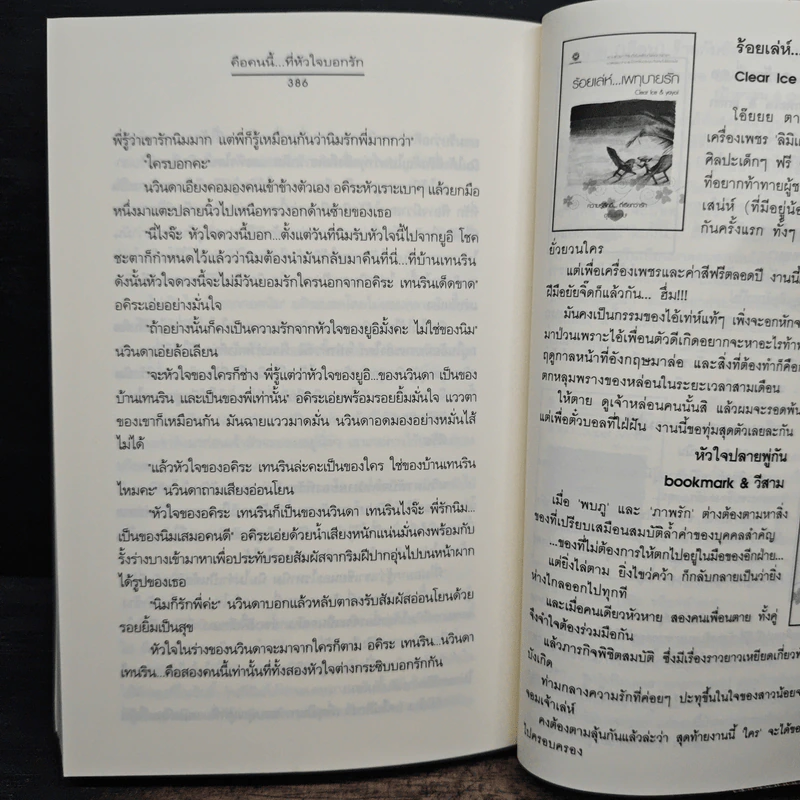 คือคนนี้...ที่หัวใจบอกรัก
386
พี่รู้ว่าเขารักนิมมาก แต่พี่ก็รู้เหมือนกันว่านิมรักพี่มากกว่า"
"ใครบอกคะ"
นวินดาเอียงคอมองคนเข้าข้างตัวเอง อคิระหัวเราะเบาๆ แล้วยกมือ
หนึ่งมาแตะปลายนิ้วไปเหนือทรวงอกด้านซ้ายของเธอ
"นี่ไงจ๊ะ หัวใจดวงนี้บอก...ตั้งแต่วันที่นิมรับหัวใจนี้ไปจากยูอิ โชค
ชะตาก็กำหนดไว้แล้วว่านิมต้องนำมันกลับมาคืนที่นี่...ที่บ้านเทนริน
ดังนั้นหัวใจดวงนี้จะไม่มีวันยอมรักใครนอกจากอคิระ เทนรินเด็ดขาด"
อคิระเอ่ยอย่างมั่นใจ
"ถ้าอย่างนั้นก็คงเป็นความรักจากหัวใจของยูอิมั้งคะ ไม่ใช่ของนิม"
นวินดาเอ่ยล้อเลียน
"จะหัวใจของใครก็ช่าง พี่รู้แต่ว่าหัวใจของยูอิ...ของนวินดา เป็นของ
บ้านเทนริน และเป็นของพี่เท่านั้น" อคิระเอ่ยพร้อมรอยยิ้มมั่นใจ แววตา
ของเขาก็เหมือนกัน มันฉายแววมาดมั่น นวินดาอดมองอย่างหมั่นไส้
ไม่ได้
"แล้วหัวใจของอคิระ เทนรินล่ะคะเป็นของใคร ใช่ของบ้านเทนริน
ไหมคะ" นวินดาถามเสียงอ่อนโยน
"หัวใจของอคิระ เทนรินก็เป็นของนวินดา เทนรินไงจ๊ะ พี่รักนิม...
เป็นของนิมเสมอคนดี" อคิระเอ่ยด้วยน้ำเสียงหนักแน่นมั่นคงพร้อมกับ
รั้งร่างบางเข้ามาหาเพื่อประทับรอยสัมผัสจากริมฝีปากอุ่นไปบนหน้าผาก
ได้รูปของเธอ
"นิมก็รักพี่ค่ะ" นวินดาบอกแล้วหลับตาลงรับสัมผัสอ่อนโยนด้วย
รอยยิ้มเป็นสุข
หัวใจในร่างของนวินดาจะมาจากใครก็ตาม อคิระ เทนริน...นวินดา
เทนริน...คือสองคนนี้เท่านั้นที่ทั้งสองหัวใจต่างกระซิบบอกรักกัน
ร้อยเล่ห์...เพทุบายรัก
Clear Ice & yayoi
ร้อยเล่ห์...
Clear Ice
โอ๊ยยย ตา
เครื่องเพชร 'ลิมิเ
ศิลปะเด็กๆ ฟรี
ที่อยากท้าทายผู้ช
เสน่ห์ (ที่มีอยู่น้อ
กันครั้งแรก ทั้งๆ
ยั่วยวนใคร
แต่เพื่อเครื่องเพชรและค่าสีฟรีตลอดปี งานนี้
ฝีมือยัยจิ๊ดก็แล้วกัน... ฮึ่ม!!!
มันคงเป็นกรรมของไอ้เท่ห์แท้ๆ เพิ่งจะอกหักจ
มาป่วนเพราะไอ้เพื่อนตัวดีเกิดอยากจะหาอะไรท้าท
ฤดูกาลหน้าที่อังกฤษมาล่อ และสิ่งที่ต้องทำก็คือ
ตกหลุมพรางของหล่อนในระยะเวลาสามเดือน
ให้ตาย ดูเจ้าหล่อนคนนั้นสิ แล้วผมจะรอดพ้น
แต่เพื่อตั๋วบอลที่ใฝ่ฝัน งานนี้ขอทุ่มสุดตัวเลยละกัน
หัวใจปลายพู่กัน
bookmark & วีสาม
เมื่อ 'พบภู' และ 'ภาพรัก' ต่างต้องตามหาสิ่ง
ของที่เปรียบเสมือนสมบัติล้ำค่าของบุคคลสำคัญ
...ของที่ไม่ต้องการให้ตกไปอยู่ในมือของอีกฝ่าย...
แต่ยิ่งไล่ตาม ยิ่งไขว่คว้า ก็กลับกลายเป็นว่ายิ่ง
ห่างไกลออกไปทุกที
และเมื่อคนเดียวหัวหาย สองคนเพื่อนตาย ทั้งคู่
จึงจำใจต้องร่วมมือกัน
แล้วภารกิจพิชิตสมบัติ ซึ่งมีเรื่องราวยาวเหยียดเกี่ยวพ
บังเกิด
ท่ามกลางความรักที่ค่อยๆ ปะทุขึ้นในใจของสาวน้อยจ
จอมเจ้าเล่ห์
คงต้องตามลุ้นกันแล้วล่ะว่า สุดท้ายงานนี้ 'ใคร' จะได้ขอ
ไปครอบครอง